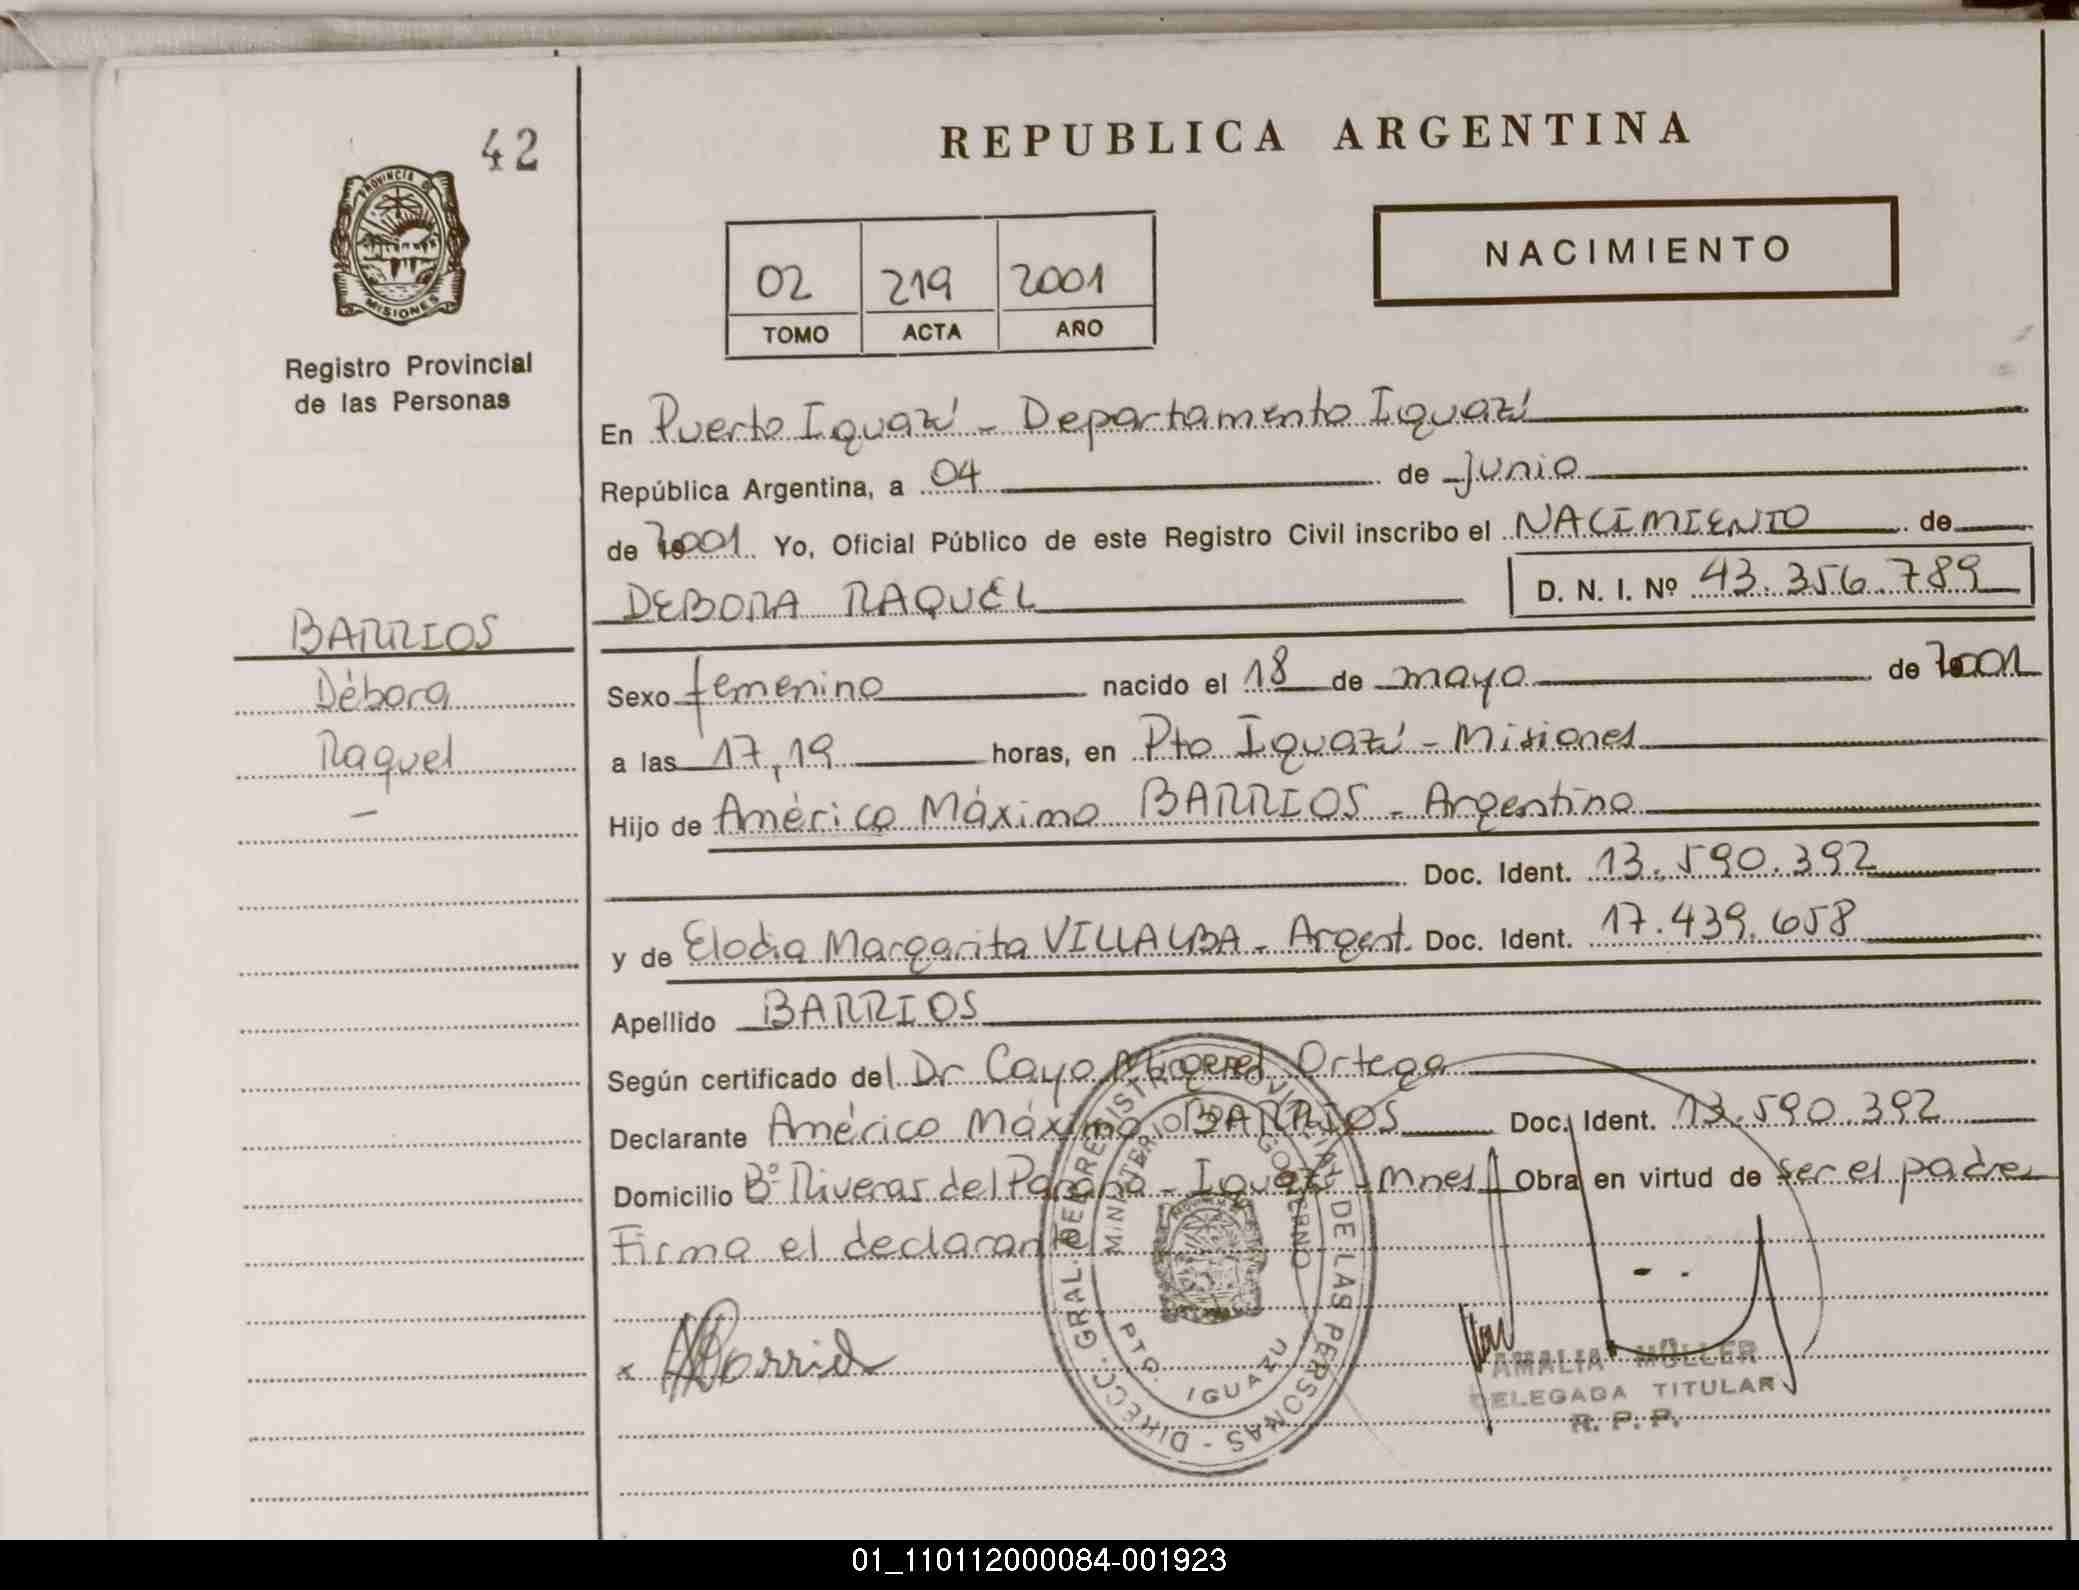 42
REPUBLICA ARGENTINA
PROVINCIA DE
MISIONES
Registro Provincial
de las Personas
NACIMIENTO
02 219 2001
TOMO ACTA AÑO
En Puerto Iguazú - Departamento Iguazú
República Argentina, a 04 de Junio
de 2001 Yo, Oficial Público de este Registro Civil inscribo el NACIMIENTO de
DEBORA RAQUEL D. N. I. Nº 43.356.789
BARRIOS
Débora
Raquel
Sexo femenino nacido el 18 de mayo de 2001
a las 17,19 horas, en Pto Iguazú - Misiones
Hijo de Américo Máximo BARRIOS - Argentino
Doc. Ident. 13.590.392
y de Elodia Margarita VILLALBA - Argent. Doc. Ident. 17.439.658
Apellido BARRIOS
Según certificado del Dr Cayo Miguel Ortega
Declarante Américo Máximo BARRIOS Doc. Ident. 13.590.392
Domicilio Bº Riveras del Paraná - Iguazú - Mnes Obra en virtud de ser el padre
Firma el declarante
x ABarrios
DIRECC. GRAL. DEL REGISTRO PROVINCIAL DE LAS PERSONAS -
MINISTERIO DE GOBIERNO
PTO. IGUAZU
AMALIA MÜLLER
DELEGADA TITULAR
R. P. P.
01_110112000084-001923